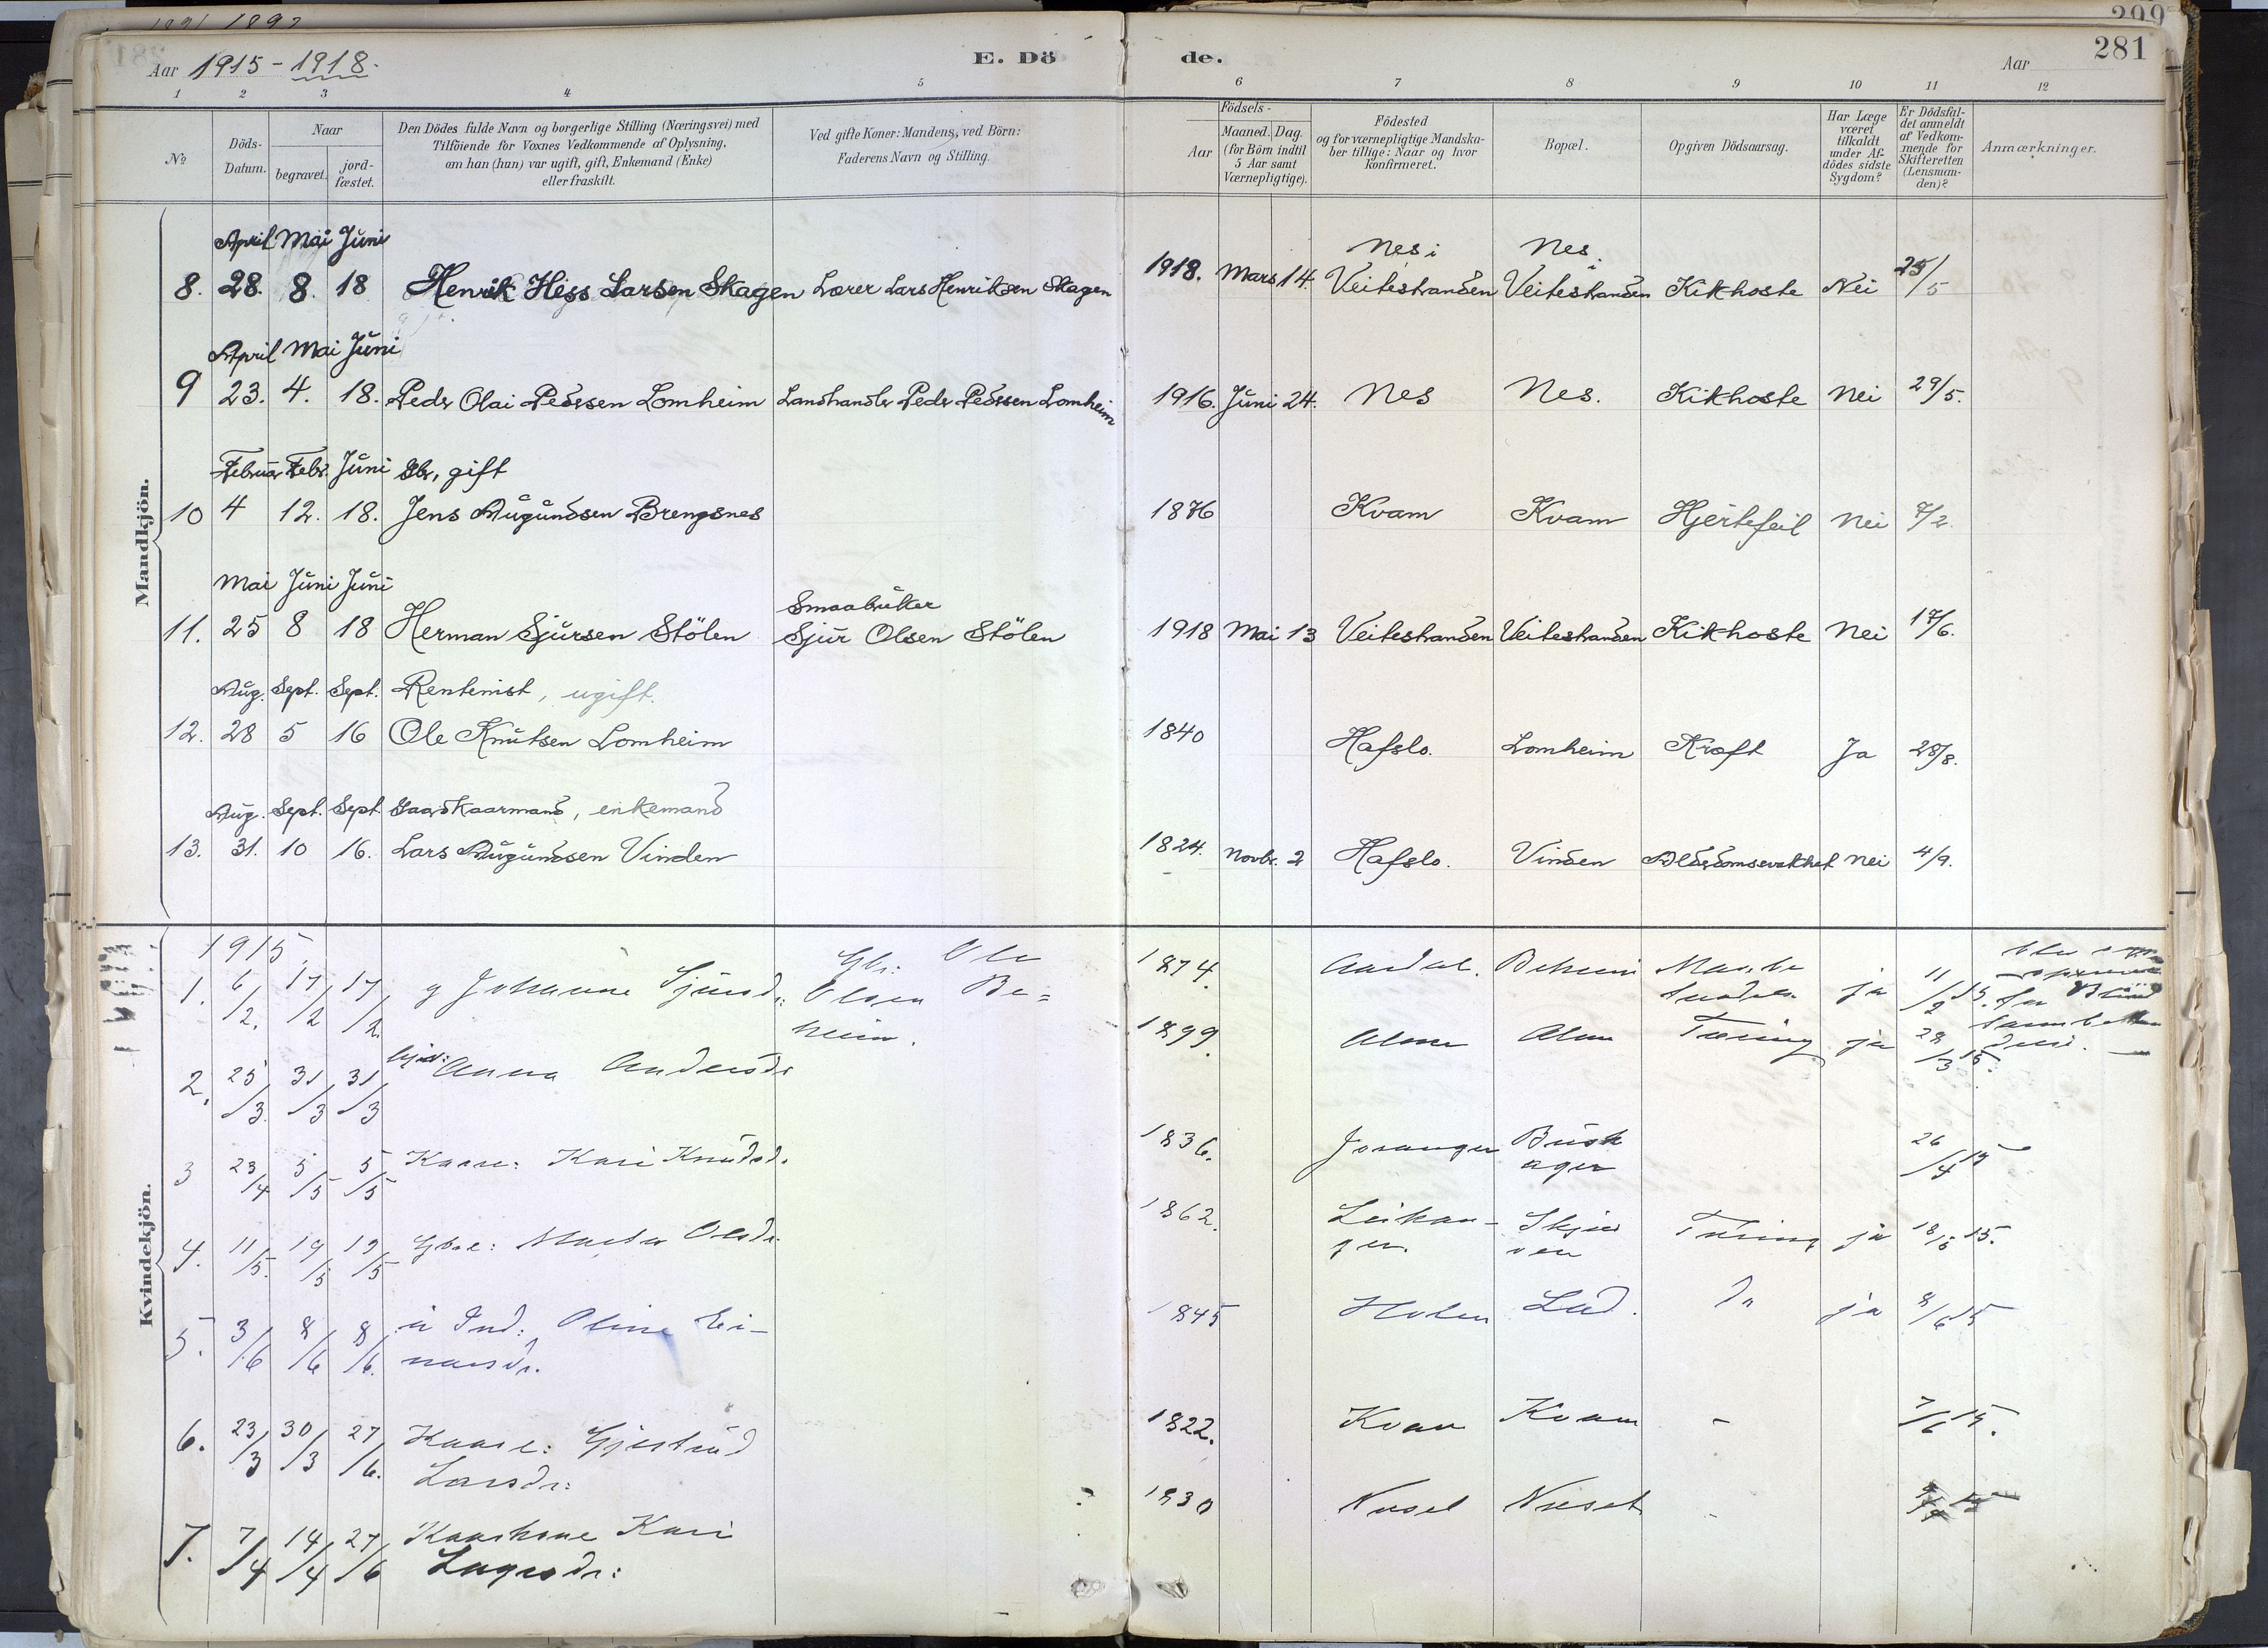 281
Aar 1915 - 1918.
E. Dö de.
Aar
1 2 3 4 5 6 7 8 9 10 11 12
No
Döds-Datum.
Naar
begravet.
jord-fæstet.
Den Dödes fulde Navn og borgerlige Stilling (Næringsvei) med
Tilföiende for Voxnes Vedkommende af Oplysning,
om han (hun) var ugift, gift, Enkemand (Enke)
eller fraskilt.
Ved gifte Koner: Mandens, ved Börn:
Faderens Navn og Stilling.
Födsels-
Aar
Maaned. Dag.
(for Börn indtil
5 Aar samt
Værnepligtige).
Födested
og for værnepligtige Mandska-
ber tillige: Naar og hvor
konfirmeret.
Bopæl.
Opgiven Dödsaarsag.
Har Læge
været
tilkaldt
under Af-
dödes sidste
Sygdom?
Er Dödsfal-
det anmeldt
af Vedkom-
mende for
Skifteretten
(Lensman-
den)?
Anmærkninger.
Mandkjön.
April Mai Juni Nes i Nes i
8. 28. 8. 18 Henrik Hess Larsen Skagen Lærer Lars Henriksen Skagen 1918. Mars 14. Veitestranden Veitestranden Kikhoste Nei 25/5
April Mai Juni
9 23. 4. 18. Peder Olai Pedersen Lomheim Landhandler Peder Pedersen Lomheim 1916. Juni 24. Nes Nes. Kikhoste Nei 29/5.
Februar Febr. Juni Gbr, gift
10 4 12. 18. Jens Augundsen Brengsnes 1876 Kvam Kvam Hjertefeil Nei 7/2.
Mai Juni Juni Smaabruker
11. 25 8 18 Herman Sjursen Stölen Sjur Olsen Stölen 1918 Mai 13 Veitestranden Veitestranden Kikhoste Nei 17/6.
Aug. Sept. Sept. Rentenist, ugift.
12. 28 5 16 Ole Knutsen Lomheim 1840 Hafslo. Lomheim Kræft Ja 28/8.
Aug. Sept. Sept. Gaardkaarmand, enkemand
13. 31. 10 16. Lars Augundsen Vinden 1824. Novbr. 2 Hafslo. Vinden Alderdomssvakhet Nei 4/9.
Kvindekjön.
1915.
1. 6/2. 17/2 17/2. g Johanne Sjursdr: Gbr: Ole Olsen Be=heim. 1874. Aardal. Beheim ja 11/2 15.
2. 25/3 31/3 31/3 Anna Andersdr 1899. Alme Alme Tæring ja 28/3 15.
3 23/4 5/5 5/5 Kaare: Kari Knudsd. 1836. Joranger Busk ager 26/4 15
4. 11/5. 19/5 19/5 Marta Olsdr. 1862. Leikan-ger. Tæring ja 18/5 15.
5. 3/6 8/6 8/6. u Ind: Oline Ei-narsdr. 1845 Holen Lad. Do ja 8/6 15
6. 23/3 30/3 27/6. Kaare: Gjertrud Larsdr: 1822. Kvam Kvam - 7/6 15.
7. 7/4 14/4 27/6 Kaarkone Kari 1830 -